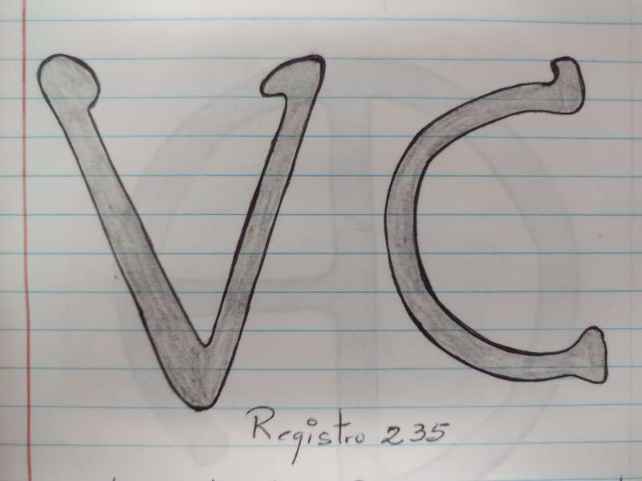 VC
Registro 235